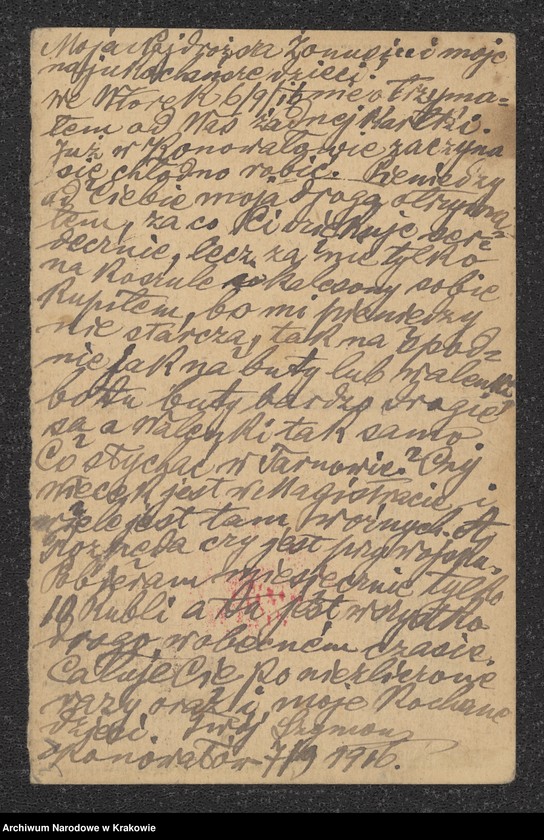 Moja Najdroższa Żonusiu i moje
najukochańsze dzieci!
we Wtorek 6/9/16 nie otrzyma-
łem od Was żadnej Kartki.
Już w Konowałowie zaczyna
się chłodno robić. Pieniędzy
od Ciebie moja droga otrzyma-
łem, za co Ci dziękuję serde-
cznie, lecz za nie tylko
na koszule kalesony sobie
Kupiłem, bo mi pieniędzy
nie starczą, tak na spod-
nie jak na buty lub walenki
buty bardzo drogie
są a walenki tak samo
Co słychać w Tarnowie? Czy
więcek jest w Magistracie i
wiele jest tam woźnych. A
czy jest przy
Pobieram miesięcznie tylko
10 Rubli a tu jest wszystko
drogo, w obecném czasie.
Całuję Cię po niezliczone
razy oraz i moje Kochane
dzieci. Twój Szymon
Konowałów 7/9 1916.
Archiwum Narodowe w Krakowie